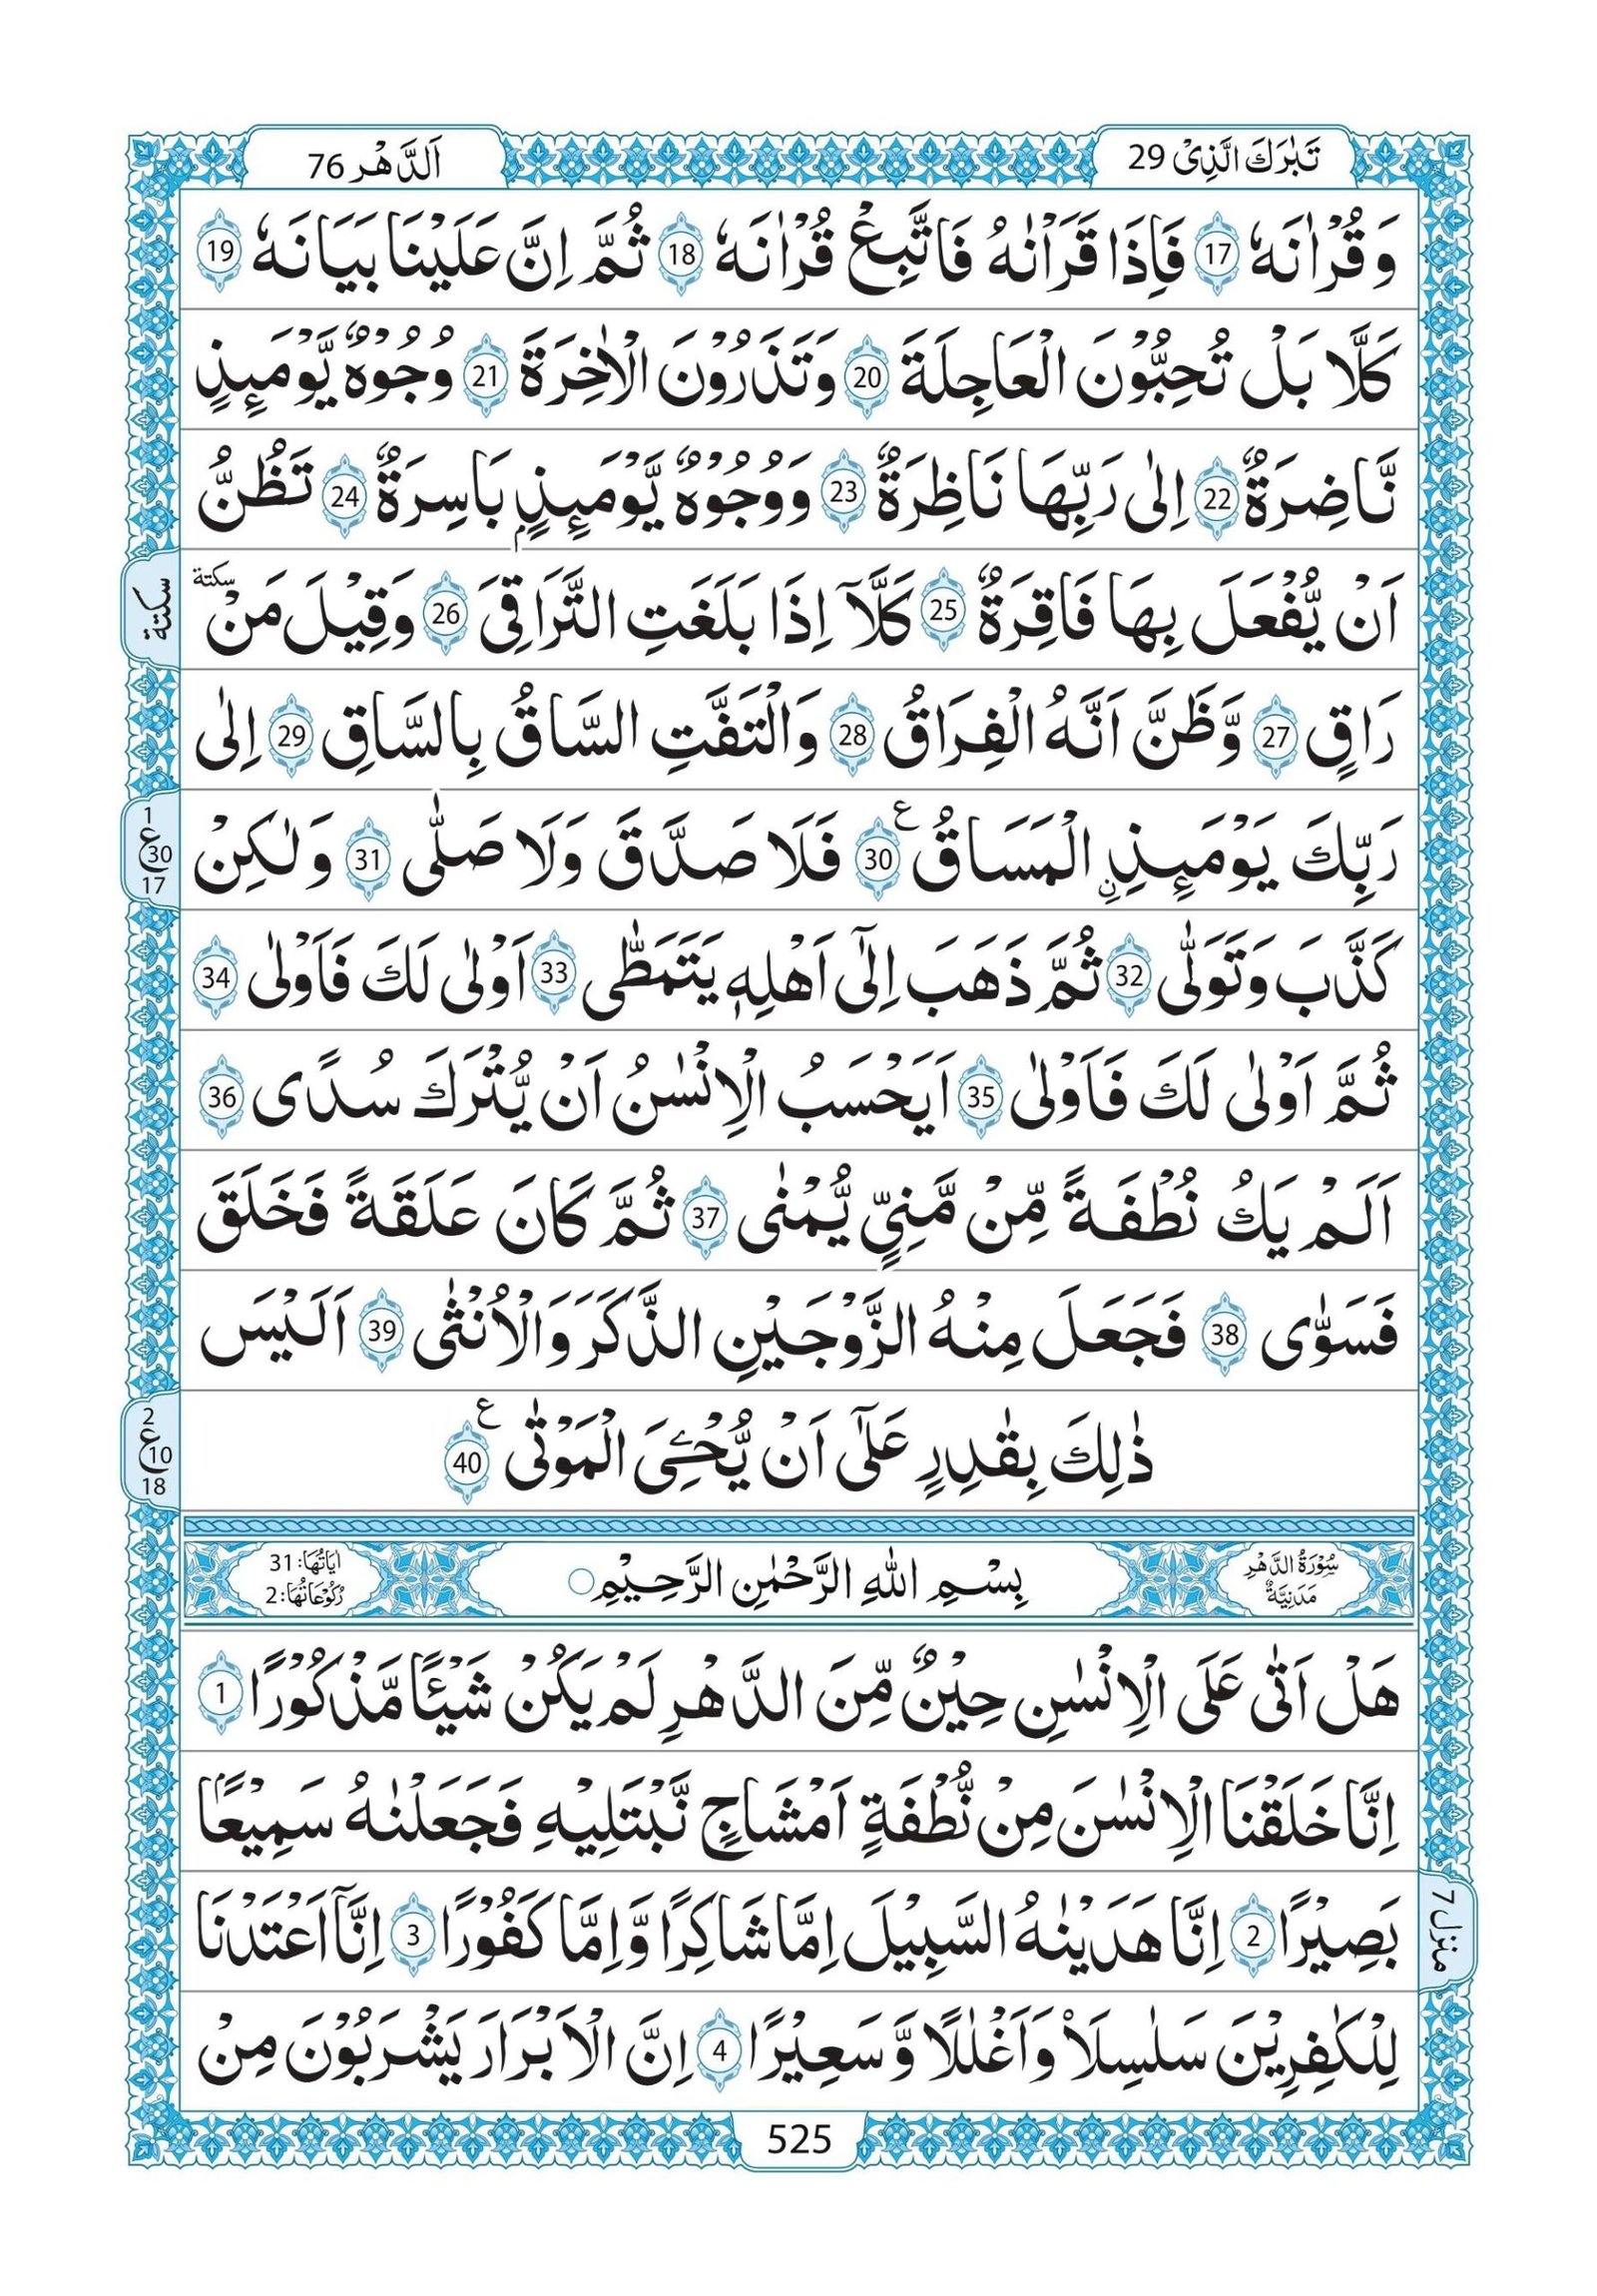 تَبٰرَكَ الَّذِیْ 29
اَلدَّهْر 76
وَ قُرْاٰنَهٗ 17 فَاِذَا قَرَاْنٰهُ فَاتَّبِعْ قُرْاٰنَهٗ 18 ثُمَّ اِنَّ عَلَیْنَا بَیَانَهٗ 19
كَلَّا بَلْ تُحِبُّوْنَ الْعَاجِلَةَ 20 وَ تَذَرُوْنَ الْاٰخِرَةَ 21 وُجُوْهٌ یَّوْمَىِٕذٍ
نَّاضِرَةٌ 22 اِلٰى رَبِّهَا نَاظِرَةٌ 23 وَ وُجُوْهٌ یَّوْمَىِٕذٍۭ بَاسِرَةٌ 24 تَظُنُّ
اَنْ یُّفْعَلَ بِهَا فَاقِرَةٌ 25 كَلَّاۤ اِذَا بَلَغَتِ التَّرَاقِیَ 26 وَ قِیْلَ مَنْ سكتة
رَاقٍ 27 وَّ ظَنَّ اَنَّهُ الْفِرَاقُ 28 وَ الْتَفَّتِ السَّاقُ بِالسَّاقِ 29 اِلٰى
رَبِّكَ یَوْمَىِٕذِ ِ۟الْمَسَاقُ 30 ع فَلَا صَدَّقَ وَ لَا صَلّٰى 31 وَ لٰكِنْ
كَذَّبَ وَ تَوَلّٰى 32 ثُمَّ ذَهَبَ اِلٰۤى اَهْلِهٖ یَتَمَطّٰى 33 اَوْلٰى لَكَ فَاَوْلٰى 34
ثُمَّ اَوْلٰى لَكَ فَاَوْلٰى 35 اَیَحْسَبُ الْاِنْسٰنُ اَنْ یُّتْرَكَ سُدًى 36
اَلَمْ یَكُ نُطْفَةً مِّنْ مَّنِیٍّ یُّمْنٰى 37 ثُمَّ كَانَ عَلَقَةً فَخَلَقَ
فَسَوّٰى 38 فَجَعَلَ مِنْهُ الزَّوْجَیْنِ الذَّكَرَ وَ الْاُنْثٰى 39 اَلَیْسَ
ذٰلِكَ بِقٰدِرٍ عَلٰۤى اَنْ یُّحْیَِۧ الْمَوْتٰى 40 ع
سُوْرَةُ الدَّهْرِ
مَدَنِیَّةٌ
بِسْمِ اللهِ الرَّحْمٰنِ الرَّحِیْمِ
اٰیَاتُهَا: 31
رُكُوْعَاتُهَا: 2
هَلْ اَتٰى عَلَى الْاِنْسٰنِ حِیْنٌ مِّنَ الدَّهْرِ لَمْ یَكُنْ شَیْــٴًـا مَّذْكُوْرًا 1
اِنَّا خَلَقْنَا الْاِنْسٰنَ مِنْ نُّطْفَةٍ اَمْشَاجٍ نَّبْتَلِیْهِ فَجَعَلْنٰهُ سَمِیْعًۢا
بَصِیْرًا 2 اِنَّا هَدَیْنٰهُ السَّبِیْلَ اِمَّا شَاكِرًا وَّ اِمَّا كَفُوْرًا 3 اِنَّاۤ اَعْتَدْنَا
لِلْكٰفِرِیْنَ سَلٰسِلَاۡ وَ اَغْلٰلًا وَّ سَعِیْرًا 4 اِنَّ الْاَبْرَارَ یَشْرَبُوْنَ مِنْ
سكتة
1
ع 30
17
2
ع 10
18
منزل 7
525